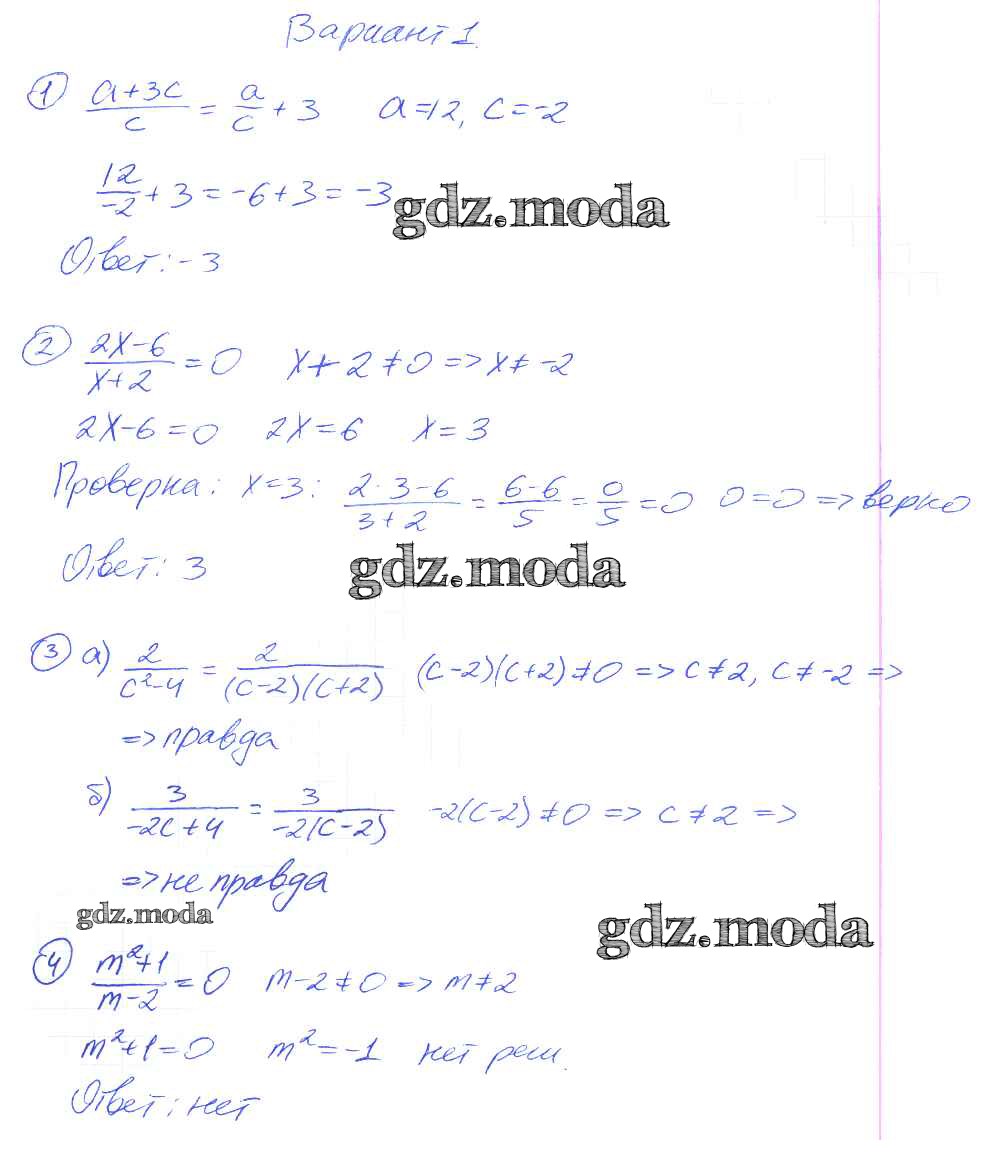 Вариант 1.
① (a+3c)/c = a/c + 3 a=12, c=-2
12/-2 + 3 = -6+3 = -3
gdz.moda
Ответ: -3
② (2x-6)/(x+2) = 0 x+2≠0 => x≠-2
2x-6=0 2x=6 x=3
Проверка: x=3: (2·3-6)/(3+2) = (6-6)/5 = 0/5 = 0 0=0 => верно
Ответ: 3
gdz.moda
③ а) 2/(c²-4) = 2/((c-2)(c+2)) (c-2)(c+2)≠0 => c≠2, c≠-2 =>
=> правда
б) 3/(-2c+4) = 3/(-2(c-2)) -2(c-2)≠0 => c≠2 =>
=> не правда
gdz.moda
gdz.moda
④ (m²+1)/(m-2) = 0 m-2≠0 => m≠2
m²+1=0 m²=-1 нет реш.
Ответ: нет